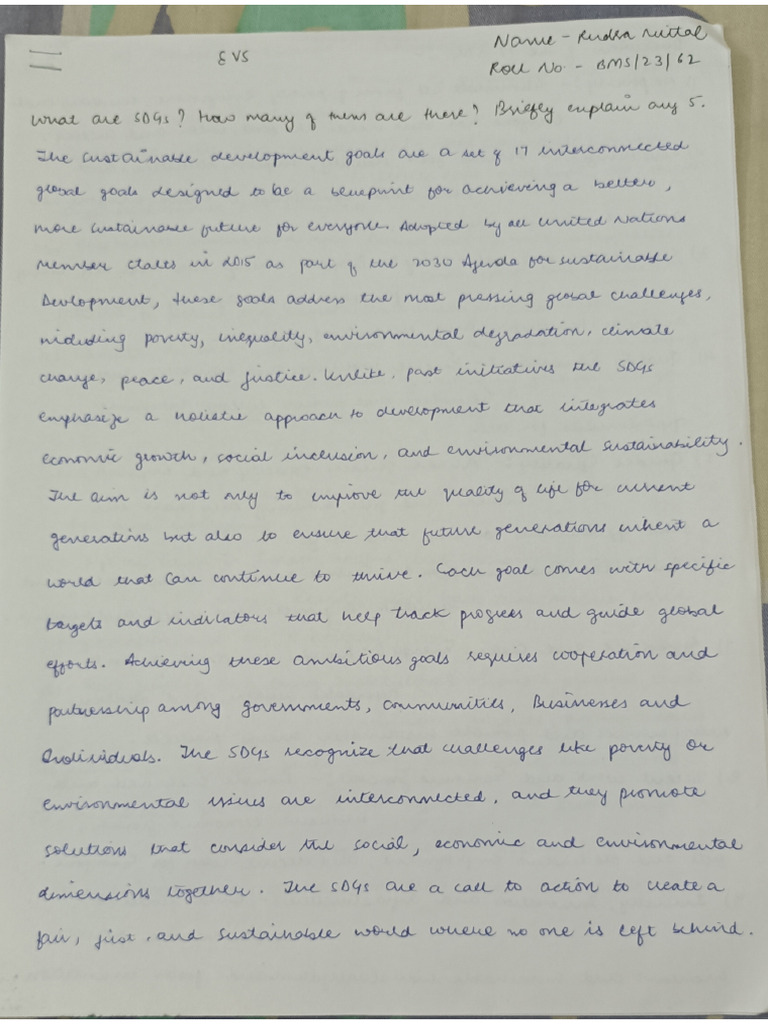 EVS
Name - Rudra Mittal
Roll No. - BMS/23/62
What are SDGs? How many of them are there? Briefly explain any 5.
The sustainable development goals are a set of 17 interconnected
global goals designed to be a blueprint for achieving a better,
more sustainable future for everyone. Adopted by all United Nations
member states in 2015 as part of the 2030 Agenda for sustainable
Development, these goals address the most pressing global challenges,
including poverty, inequality, environmental degradation, climate
change, peace, and justice. Unlike, past initiatives the SDGs
emphasize a holistic approach to development that integrates
economic growth, social inclusion, and environmental sustainability.
The aim is not only to improve the quality of life for current
generations but also to ensure that future generations inherit a
world that can continue to thrive. Each goal comes with specific
targets and indicators that help track progress and guide global
efforts. Achieving these ambitious goals requires cooperation and
partnership among governments, communities, Businesses and
Individuals. The SDGs recognize that challenges like poverty or
environmental issues are interconnected, and they promote
solutions that consider the social, economic and environmental
dimensions together. The SDGs are a call to action to create a
fair, just, and sustainable world where no one is left behind.